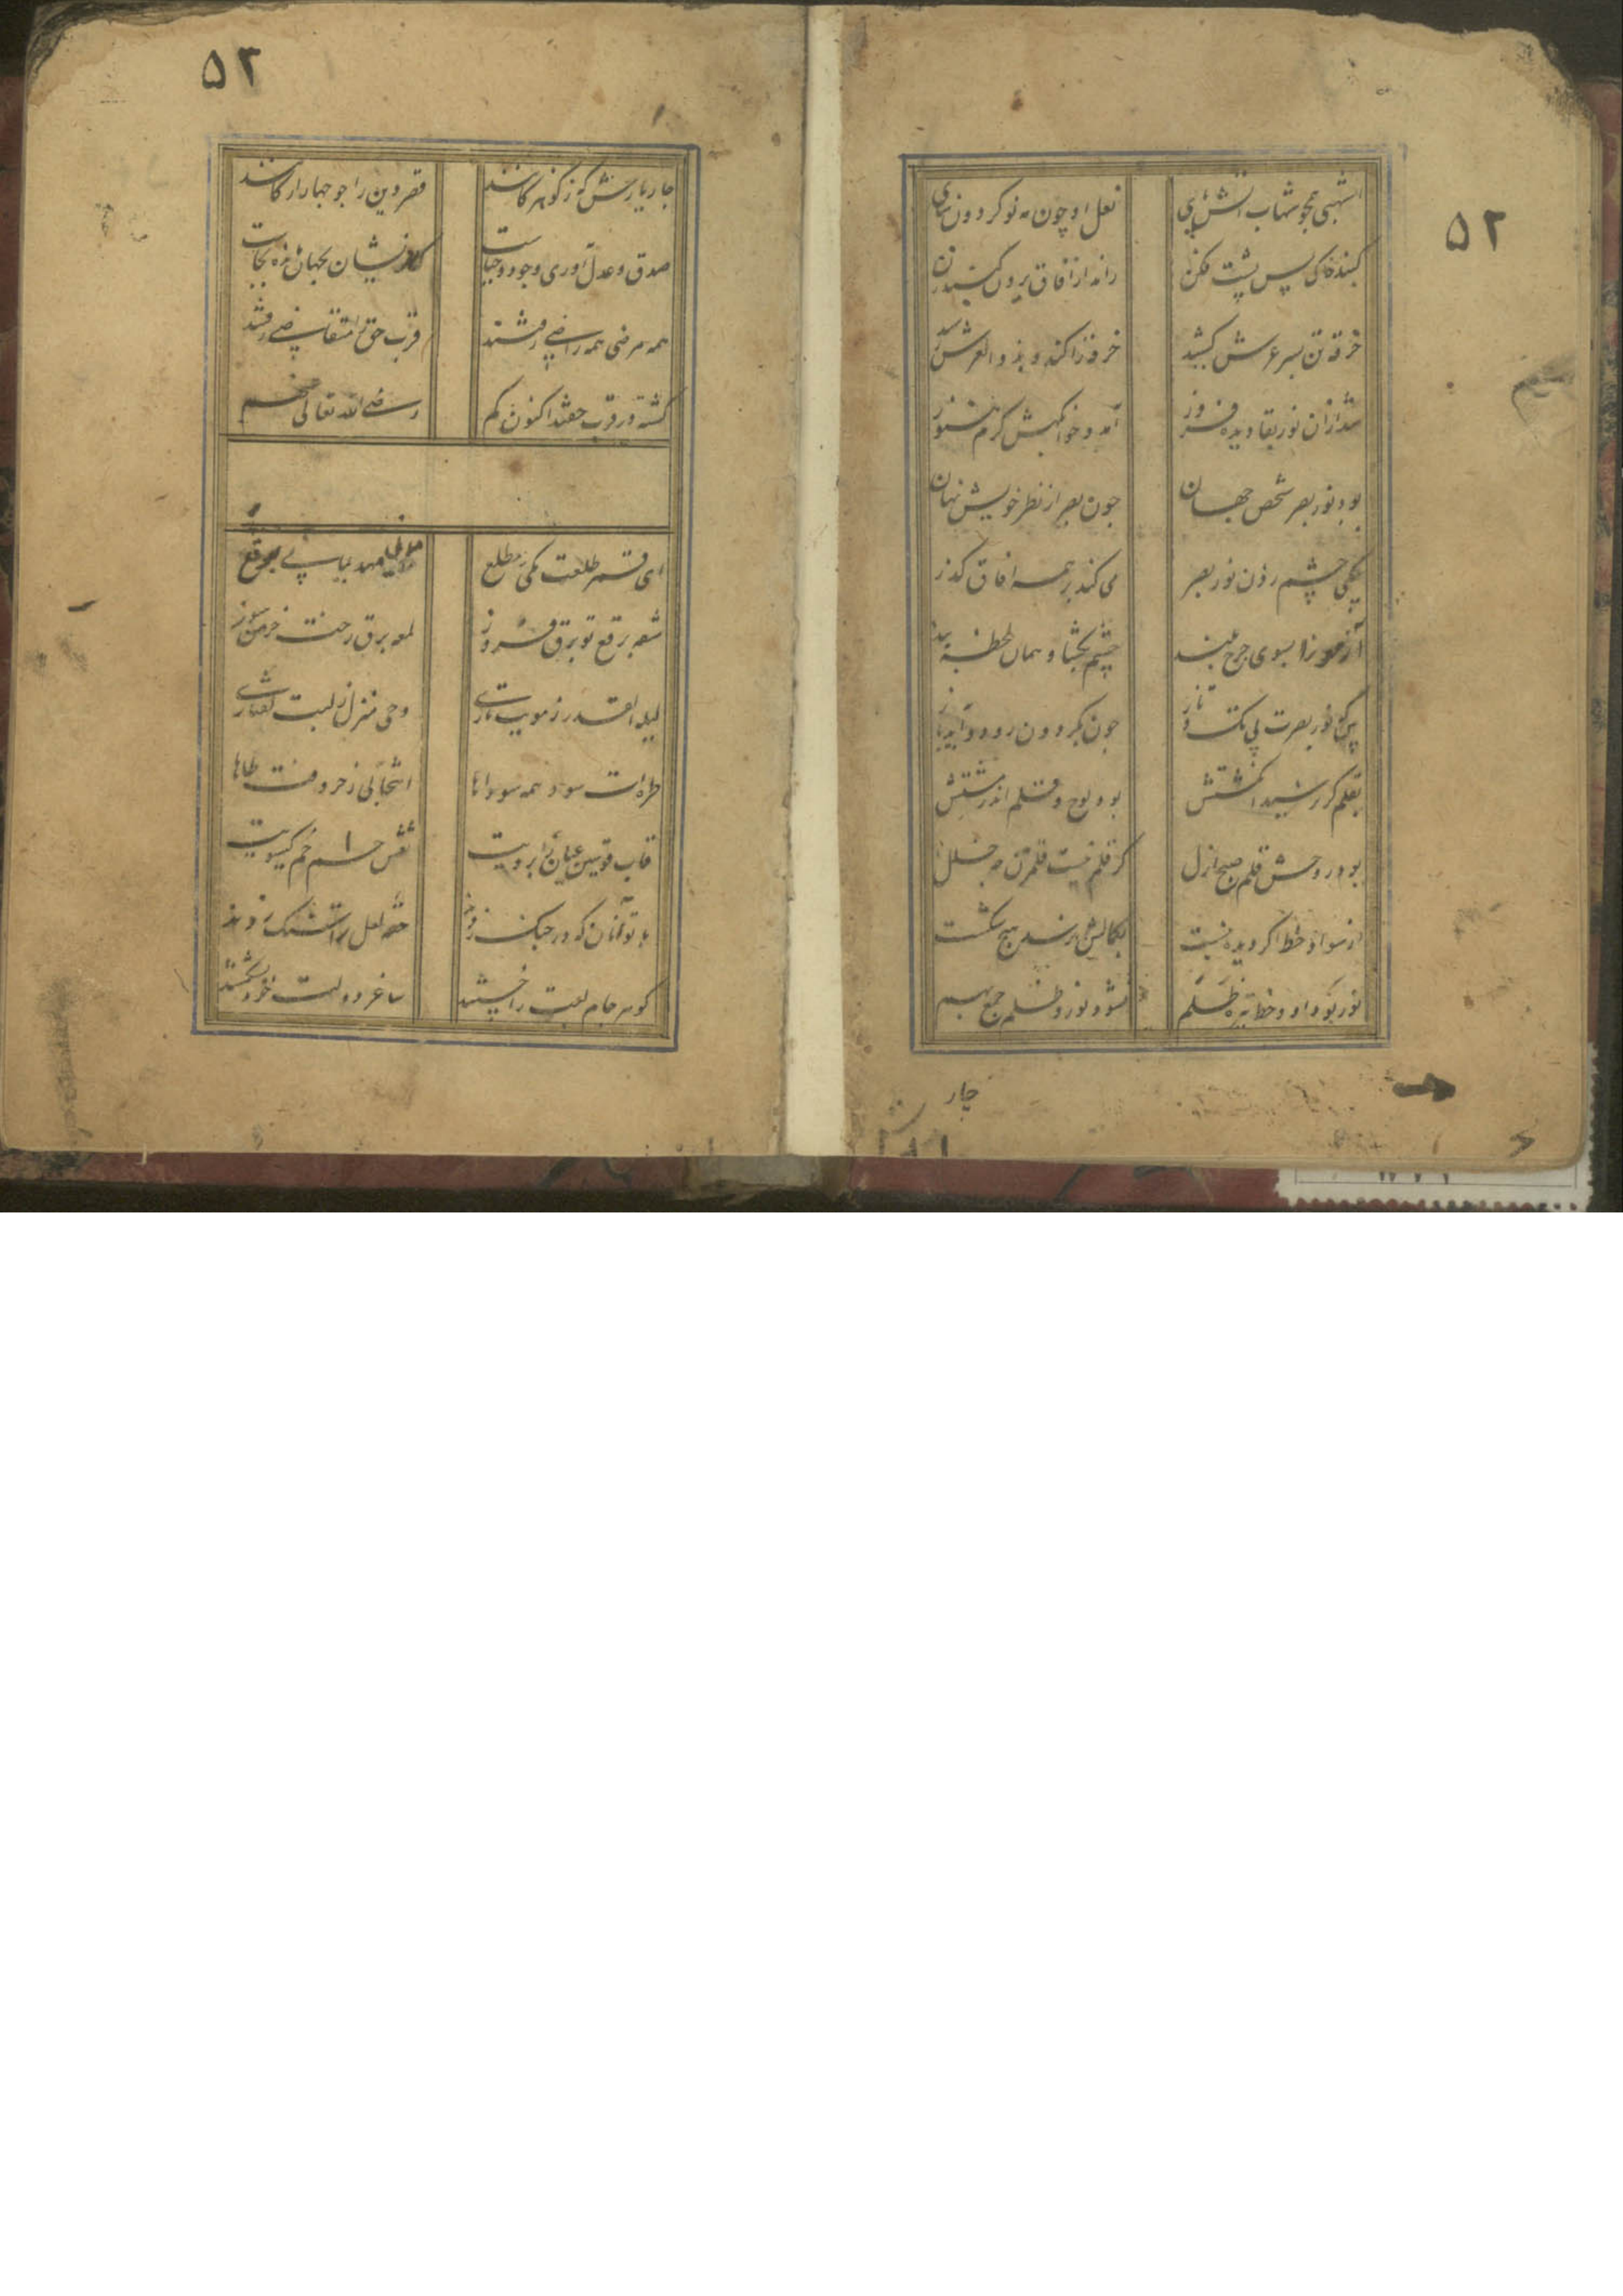 ۵۲
اشهبی همچو شهاب آتش پی
نعل او چون مه نو گردون سای
پس پشت فکن
راند از آفاق برون
خرقه تن بسر عرش کشید
خرقه را کند و بذو العرش رسید
شد از آن نور بقا دیده فروز
آمد و خوابگهش گرم هنوز
بود نور بصر شخص جهان
چون بصر از نظر خویش نهان
چشم زدن نور بصر
می کند بر همه آفاق گذر
آزمون را بسوی چرخ بلند
چشم بگشا و همان لحظه ببند
بین که نور بصرت بی تک و تاز
چون بگردون رود و آید باز
بقلم گر نرسید انگشتش
بود لوح و قلم اندر مشتش
بود روحش قلم صبح ازل
گر قلم نیست قلمزن چه خلل
از سواد خط اگر دیده ببست
بکمالش نرسد هیچ شکست
نور بود او و خط تیره ظلم
نشود نور و ظلم جمع بهم
چار
۵۲
چار یارش که ز گوهر کانند
قصر دین را چو چهار ارکانند
صدق و عدل آوری وجود و حیاست
کار ایشان بجهان
همه مرضی همه راضی رفتند
قرب حق را متقاضی رفتند
گشته در قرب حقند اکنون گم
رضی الله تعالی عنهم
ای قمر طلعت مکی مطلع
مدنی مهد یمانی برقع
شقه برقع تو برق فروز
لمعه برق رخت خرمن سوز
لیلة القدر ز مویت تاری
وحی منزل ز لبت گفتاری
طره ات سود همه سوداها
انتخابی ز حروفت طاها
قاب قوسین عیان ز ابرویت
نقش حم خم گیسویت
با تو آنان که در جنگ زدند
حقه لعل ترا سنگ زدند
گوهر جام لبت را خستند
ساغر دولت خود بشکستند